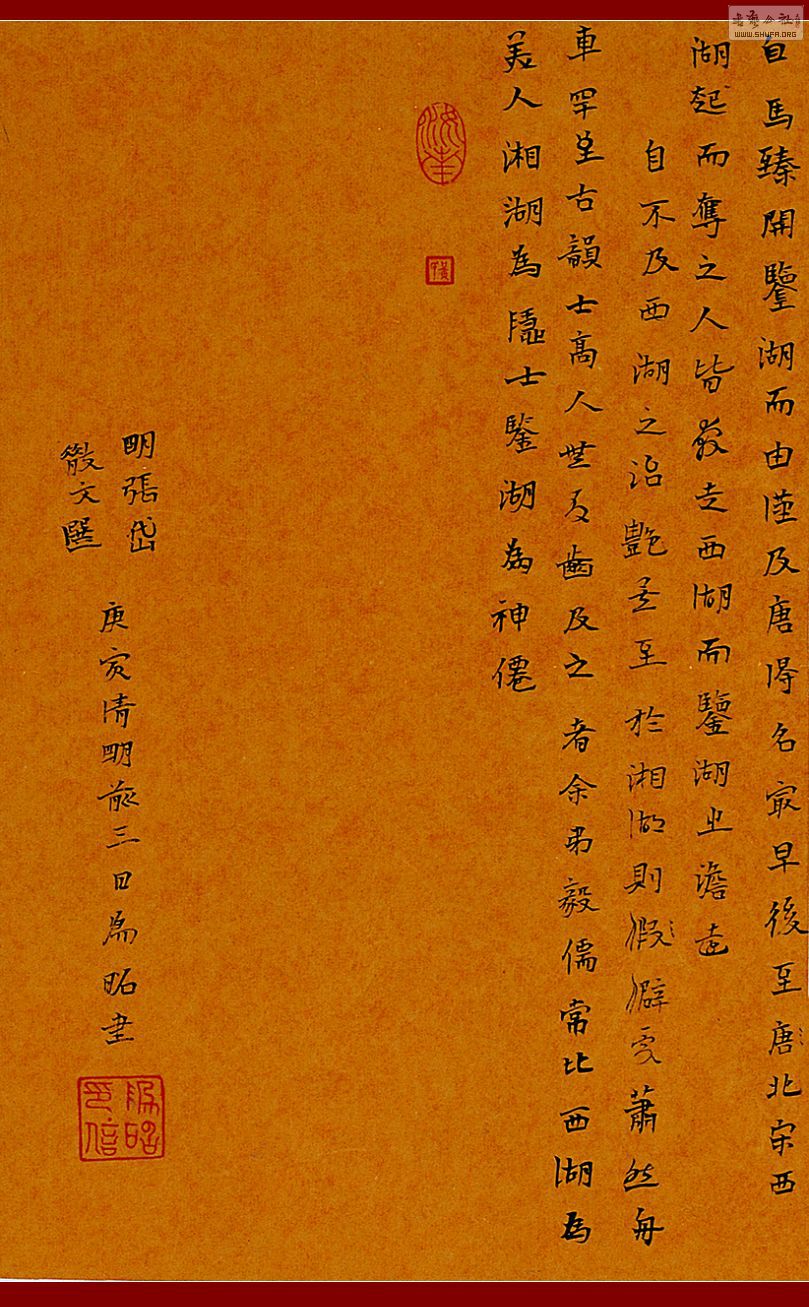 书法公社
WWW.SHUFA.ORG
自馬臻開鑒湖而由漢及唐得名最早後至唐北宋西
湖起而奪之人皆奔走西湖而鑒湖之澹遠
自不及西湖之冶艷矣至於湘湖則假僻處蕭然舟
車罕至古韻士高人無齒及之者余弟毅儒常比西湖為
美人湘湖為隱士鑒湖為神僊
明張岱
散文選
庚寅清明前三日為昭書